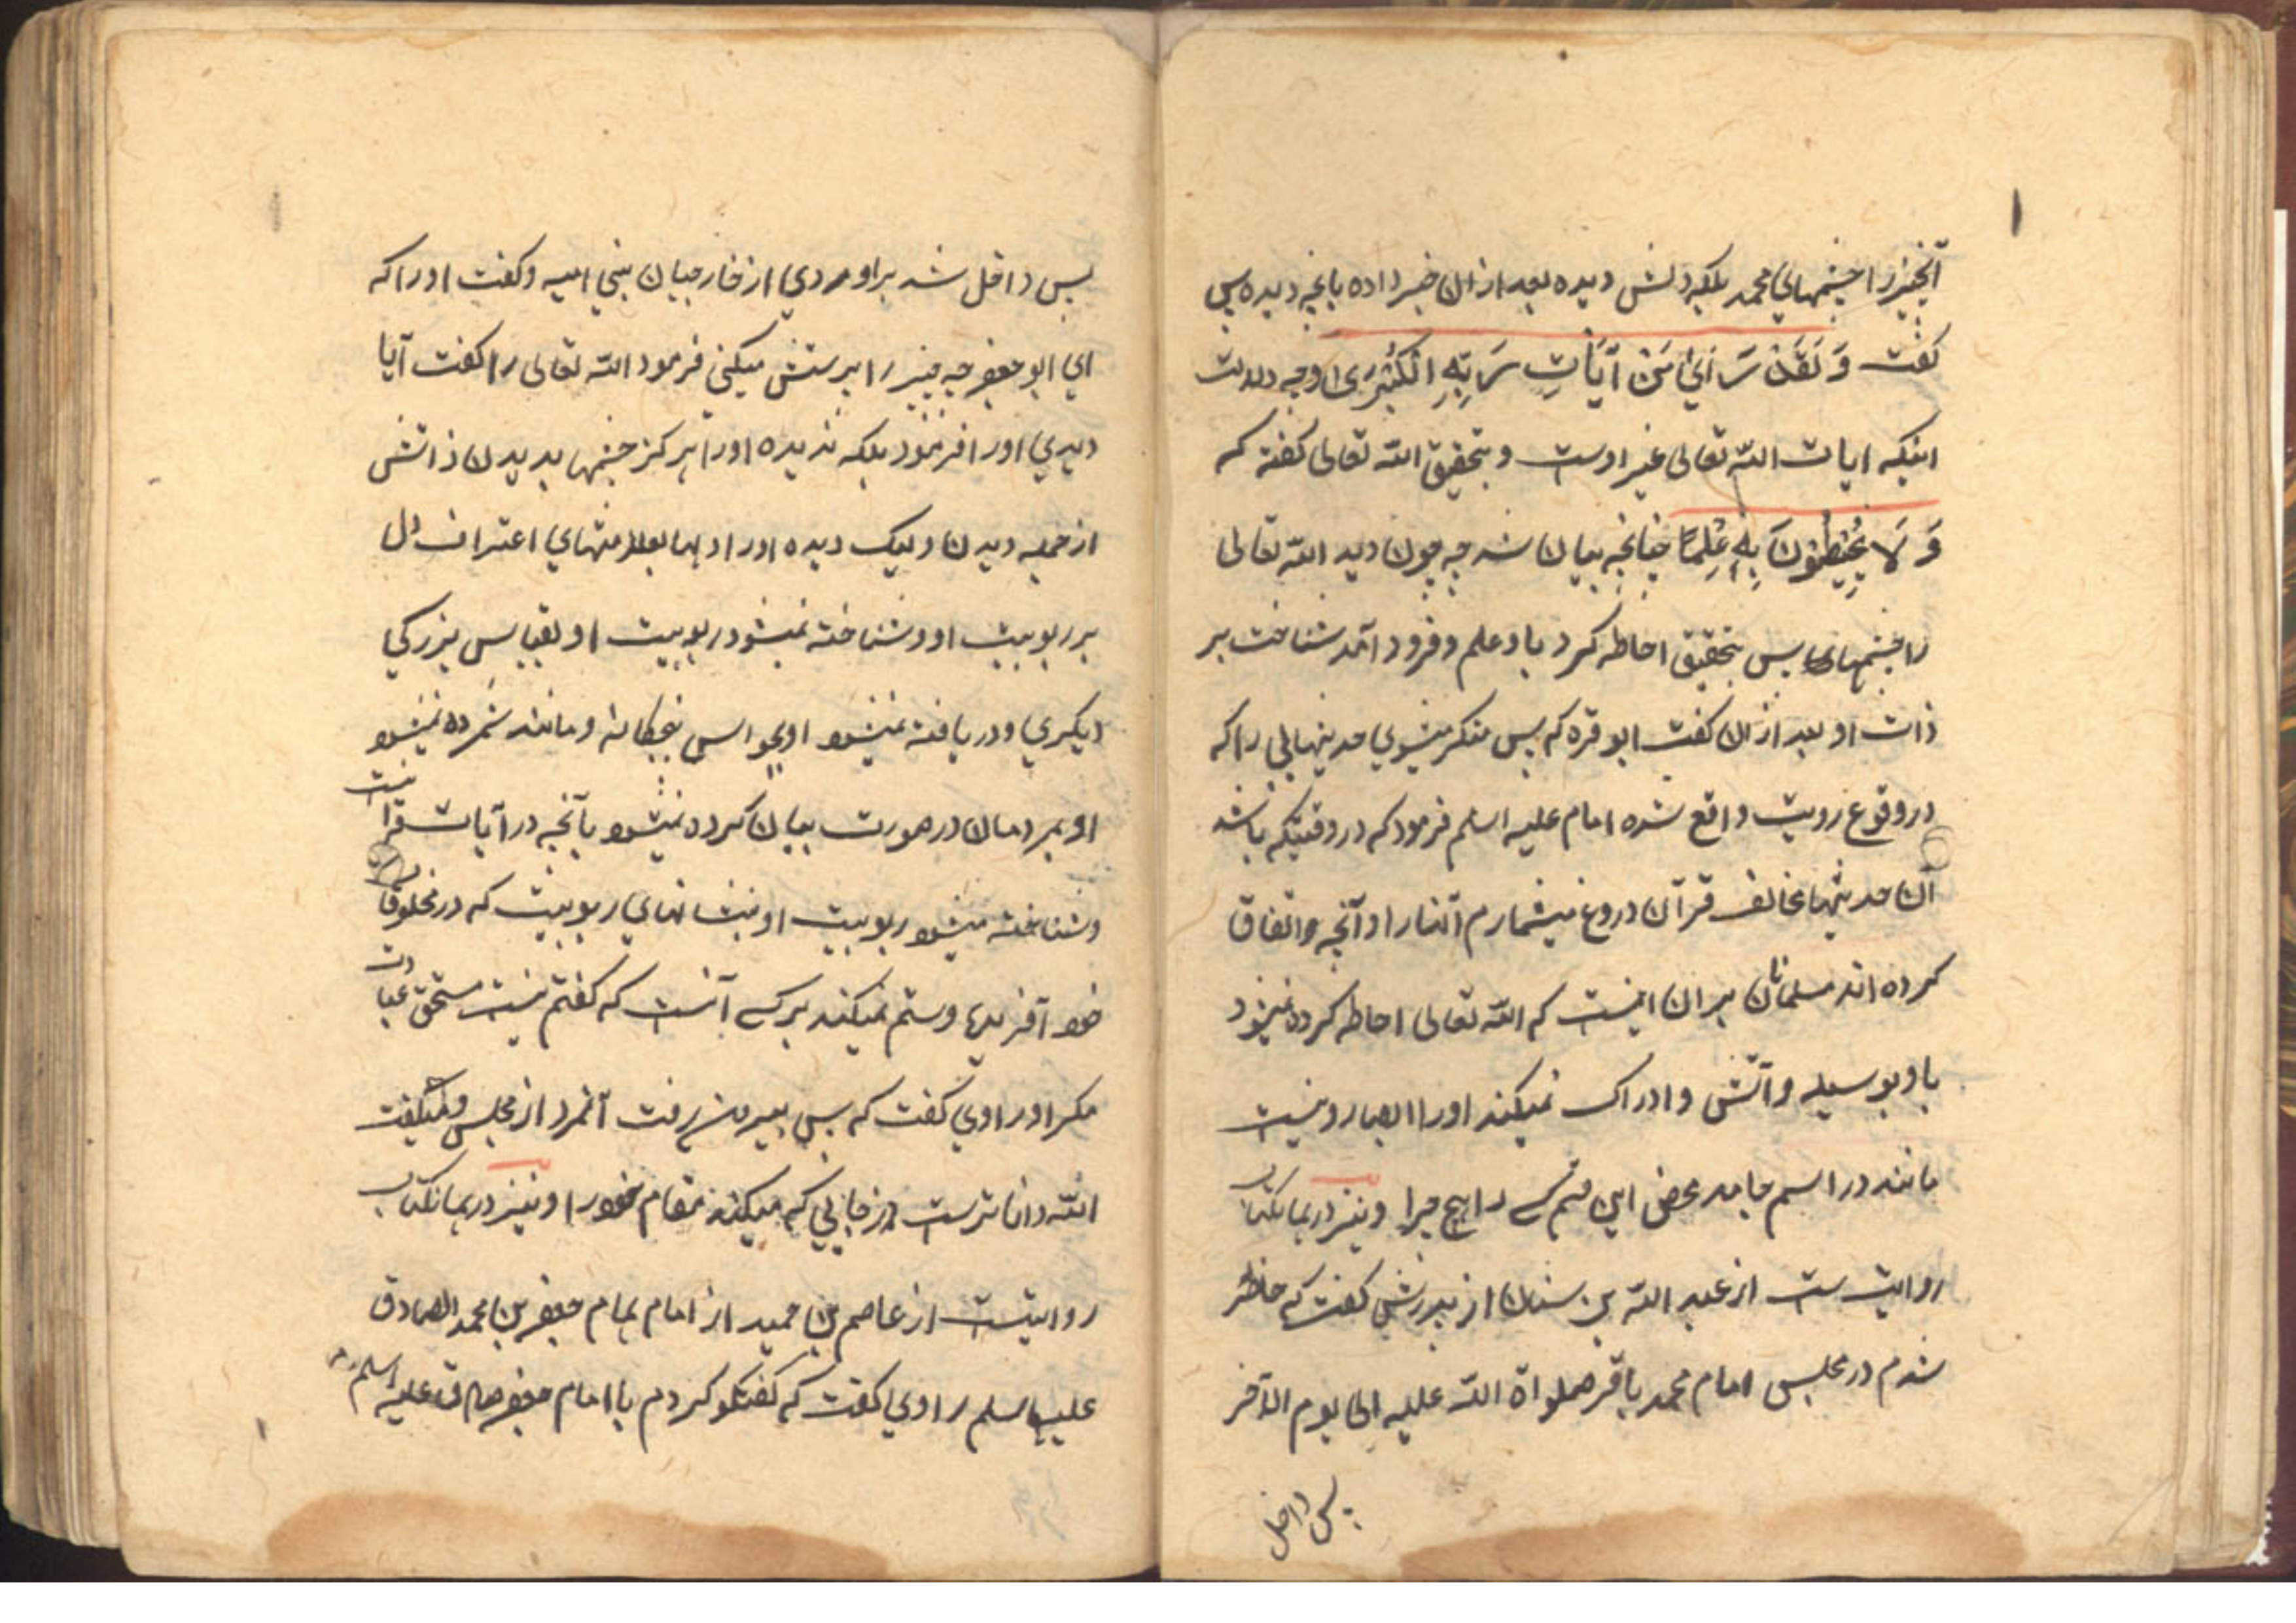 آنچیز را چشمهای محمد بلکه دلش دیده بعد ازان خبر داده بانچه دیده پس
گفت وَ لَقَدْ رَاٰیٰ مِنْ آیَاتِ رَبِّهِ الْکُبْرَیٰ وجه دلالت
اینکه ایات الله تعالی غیر اوست و بتحقیق الله تعالی گفته که
وَ لَا یُحِیْطُوْنَ بِهِ عِلْمًا چنانچه بیان شد چه چون دید الله تعالی
را چشمهای پس بتحقیق احاطه کرد باو علم و فرود آمد شناخت بر
ذات او بعد ازان گفت ابو قره که پس منکر میشوی حدیثهایی را که
در وقوع رویت واقع شده امام علیه اسلم فرمود که در وقتیکه باشد
آن حدیثها مخالف قرآن دروغ میشمارم آنها را و آنچه واتفاق
کرده اند مسلمانان بران اینست که الله تعالی احاطه کرده نمیشود
باو بوسیله وآتش وادراک نمیکند اورا ابصار ونیست
مانند در اسم جامد محض این قسم کسی را هیچ چیزا ونیز در همانکتاب
روایت ست از عبد الله بن سنان از پدرش گفت که حاظر
شدم در مجلس امام محمد باقر صلواة الله علیه الی یوم الآخر
پس داخل
پس داخل شد براو مردی از خارجیان بنی امیه وگفت اورا که
ای ابو جعفر چه چیز را پرستش میکنی فرمود الله تعالی را گفت آیا
دیدی اورا فرمود بلکه ندیده اورا هرگز چشمها بدیدن ذاتش
از جمله دیدن ولیک دیده اورا دلها اعتراف دل
بر ربوبیت او وشناخته نمیشود ربوبیت او بقیاس بزرگی
دیگری و دریافته نمیشود او بحواس پنجگانه ومانند شمرده نمیشود
او بمردمان در صورت بیان کرده نمیشود بآنچه در آیات قرآنیت
وشناخته میشود ربوبیت او بنشانهای ربوبیت که در مخلوقات
خود آفریدها وستم نمیکند بر کسی آنست که گفتم نیست مستحق عبادت
مگر او راوی گفت که پس بیرون رفت آنمرد از مجلس ومیگفت
الله داناترست از جایی که میکند مقام خود را ونیز در همانکتاب
روایتست از عاصم بن حمید از امام همام جعفر بن محمد الصادق
علیه اسلم راوی گفت که گفتگو کردم با امام جعفر صادق علیه اسلم